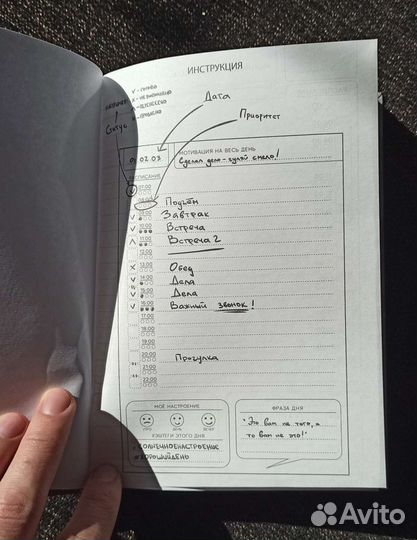 ИНСТРУКЦИЯ
V - СДЕЛАНО
X - НЕ ВЫПОЛНЕНО
Λ - ПЕРЕНЕСЕНО
Статус
Дата
Приоритет
02 03
МОТИВАЦИЯ НА ВЕСЬ ДЕНЬ
Сделал дело - гуляй смело!
РАСПИСАНИЕ
07:00
08:00 Подъём
09:00 Завтрак
10:00 Встреча
11:00 Встреча 2
12:00
13:00 Обед
14:00 Дела
15:00 Дела
16:00 Важный звонок!
17:00
18:00
19:00
20:00 Прогулка
21:00
22:00
МОЁ НАСТРОЕНИЕ
УТРО ДЕНЬ ВЕЧЕР
ХЭШТЕГИ ЭТОГО ДНЯ
#СОЛНЕЧНОЕНАСТРОЕНИЕ
#ХОРОШИЙДЕНЬ
ФРАЗА ДНЯ
"Это вам не того, а
то вам не это!"
Avito